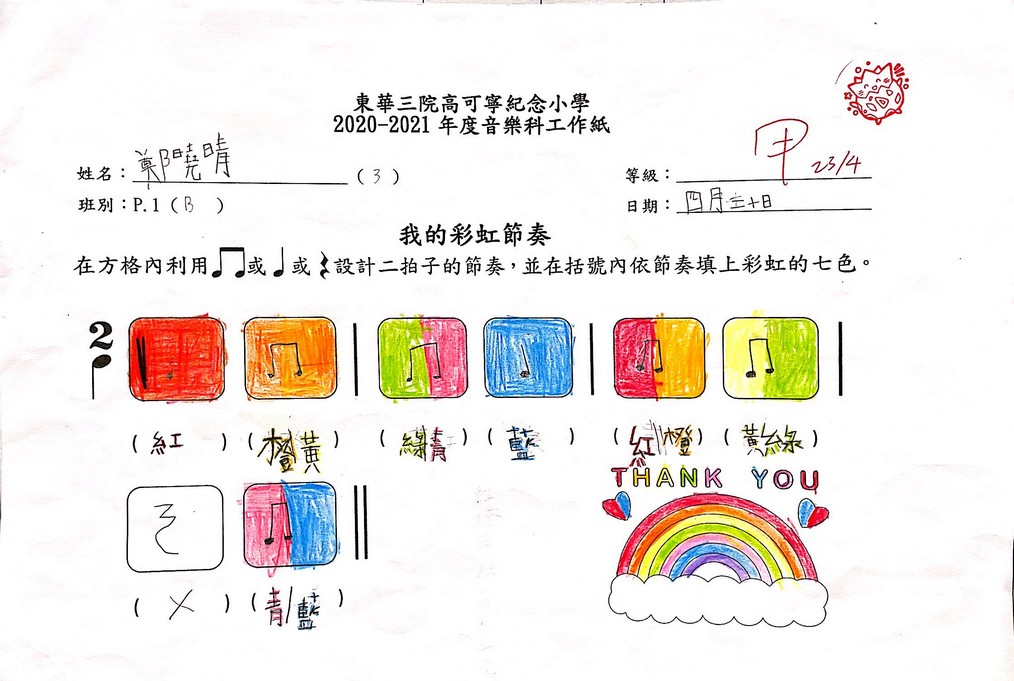 東華三院高可寧紀念小學
2020-2021 年度音樂科工作紙
姓名：鄭曉晴（3）
等級：甲 23/4
班別：P.1（B）
日期：四月二十日
我的彩虹節奏
在方格內利用♫或♩或𝄽設計二拍子的節奏，並在括號內依節奏填上彩虹的七色。
2
（紅）（橙黃）（綠青）（藍）（紅橙）（黃綠）
THANK YOU
（X）（青藍）